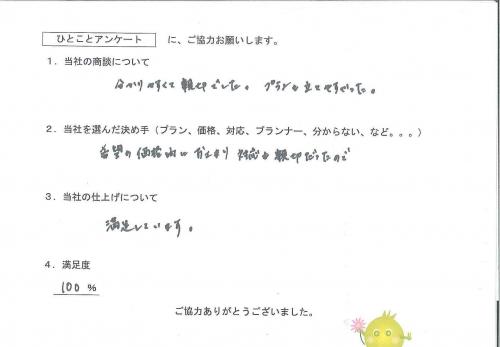 ひとことアンケート に、ご協力お願いします。
１．当社の商談について
分かりやすくて親切でした。プランも立てやすかった。
２．当社を選んだ決め手（プラン、価格、対応、プランナー、分からない、など。。。）
希望の価格内におさまり 対応も親切だったので
３．当社の仕上げについて
満足しています。
４．満足度
100 %
ご協力ありがとうございました。